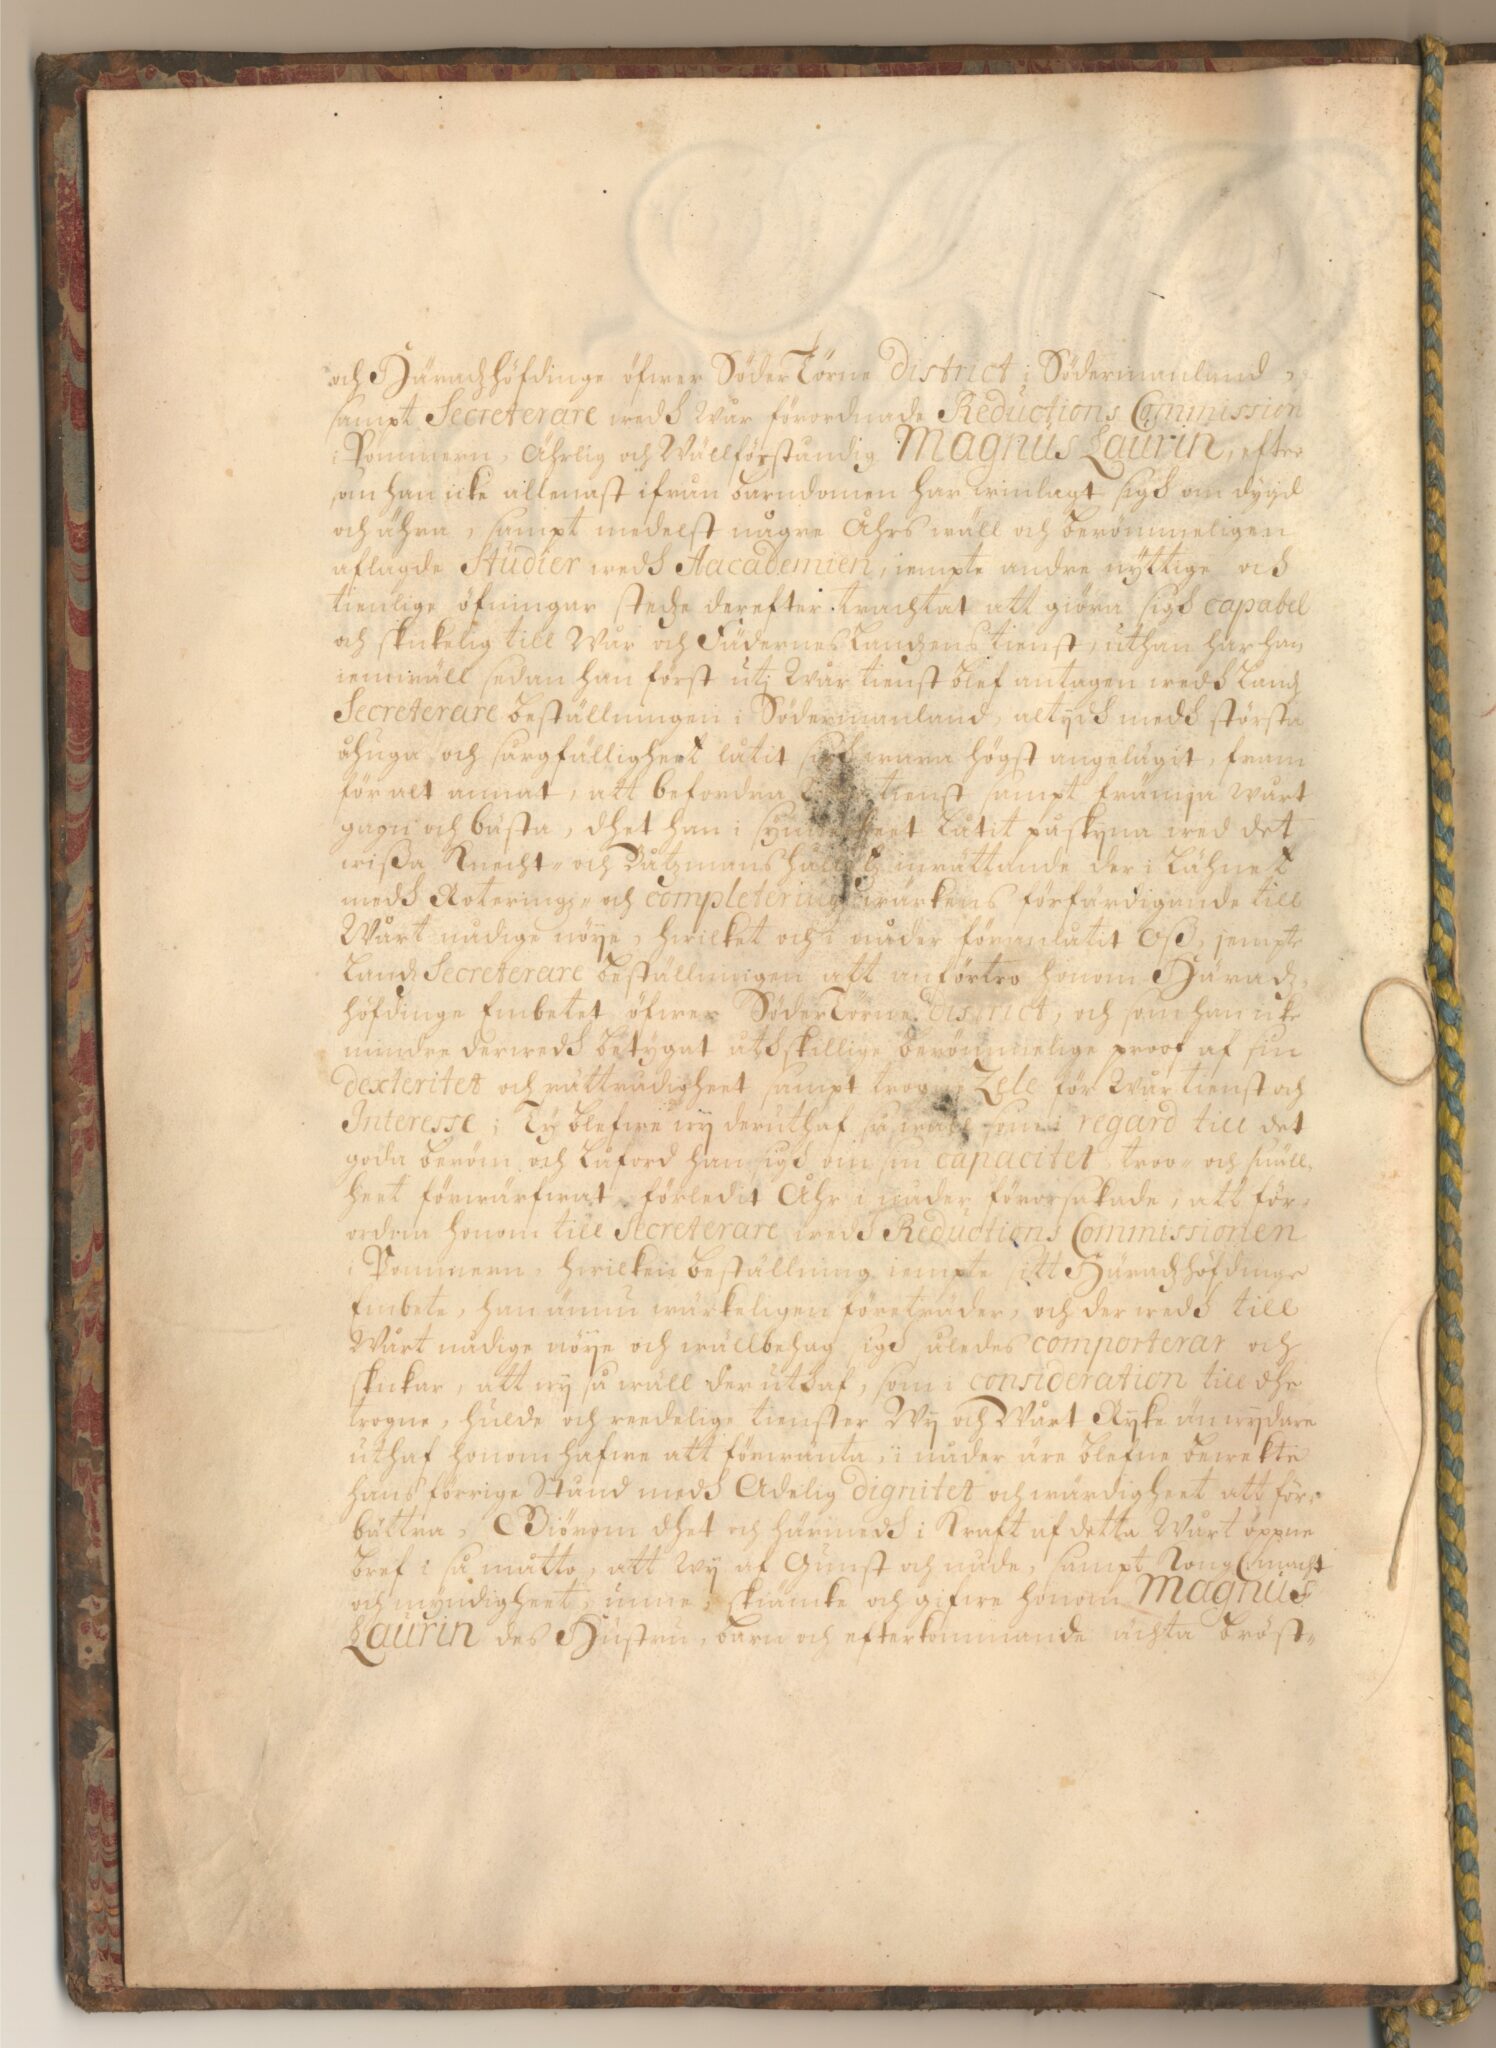 och Häradzhöfdinge öfwer SöderTörne District i Södermanland,
sampt Secreterare wedh Wår förordnade Reductions Commission
i Pommern, Ährlig och Wällförståndig Magnus Laurin, efter
som han icke allenast ifrån barndomen har winlagt sigh om dygd
och ähra, sampt medelst någre Åhrs wäll och berömmeligen
aflagde Studier wedh Aacademien, iempte andre nyttige och
tienlige öfningar stedze derefter trachtat att giöra sigh capabel
och skickelig till Wår och Fäderneslandzens tienst, uthan har han
iemwäll sedan han först utj Wår tienst blef antagen wedh Landz
Secreterare beställningen i Södermanland, altijdh medh största
åhuga och sorgfälligheet låtit sigh wara högst angelägit, fram
för alt annat, att befordra tienst sampt främja Wårt
gagn och bästa, dhet han i synnerheet låtit påskyna wed det
wissa Knecht- och Båtzmans hålletz inrättande der i Lähnet
medh Roteringz- och completerings wärkens förfärdigande till
Wårt nådige nöye, hwilket och i nåder föranlåtit Oß, jempte
Landz Secreterare beställningen att anförtro honom Häradz-
höfdinge Embetet öfwer SöderTörne District, och som han icke
mindre derwedh betygat åthskillige berömmelige proof af sin
dexteritet och rättrådigheet sampt trogne Zele för Wår tienst och
Interesse; Ty blefwe wy deruthaf så wäll som i regard till det
goda beröm och Låford han sigh om sin capacitet, troo- och snäll-
heet förwärfwat, förledit Åhr i nåder förorsakade, att för-
ordna honom till Secreterare wedh Reductions Commissionen
i Pommern, hwilken beställning iempte sitt Häradzhöfdinge
Embete, han ännu wärkeligen företräder, och der wedh till
Wårt nådige nöye och wällbehag sigh således comporterar och
skickar, att wy så wäll der uthaf, som i consideration till dhe
trogne, hulde och reedelige tienster Wy och Wårt Ryke än wydare
uthaf honom hafwe att förwänta, i nåder äre blefne bewekte
hans förrige Stånd medh Adelig dignitet och wärdigheet att för-
bättra, Giörom dhet och härmedh i Kraft af detta Wårt öppne
bref i så matto, att Wy af Gunst och nåde, sampt Kongl. macht
och myndigheet, unne, skiäncke och gifwe honom Magnus
Laurin des Hustru, barn och efterkommande ächta bröst-